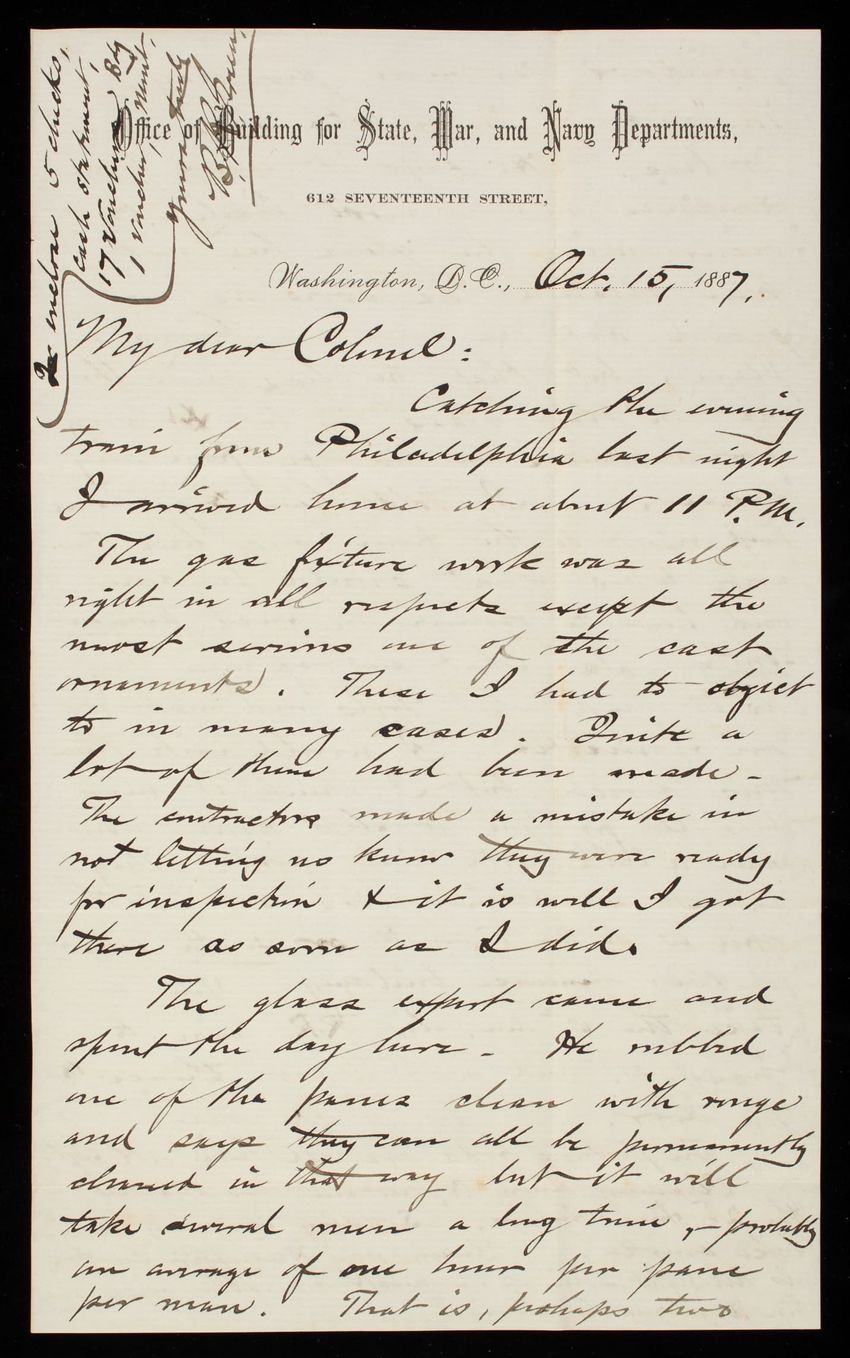 Office of Building for State, War, and Navy Departments,
612 SEVENTEENTH STREET,
Washington, D.C., Oct. 15, 1887.
My dear Colonel:
Catching the evening
train from Philadelphia last night
I arrived home at about 11 P.M.
The gas fixture work was all
right in all respects except the
most serious one of the cast
ornaments. These I had to object
to in many cases. Quite a
lot of them had been made -
The contractors made a mistake in
not letting us know they were ready
for inspection & it is well I got
there as soon as I did.
The glass expert came and
spent the day here - He rubbed
one of the panes clean with rouge
and says they can all be permanently
cleaned in that way but it will
take several men a long time, - probably
an average of one hour per pane
per man. That is, perhaps two
I enclose 5 checks,
cash statement,
17 vouchers Bdg
1 voucher, Mont.
Yours truly
B. R. Green,